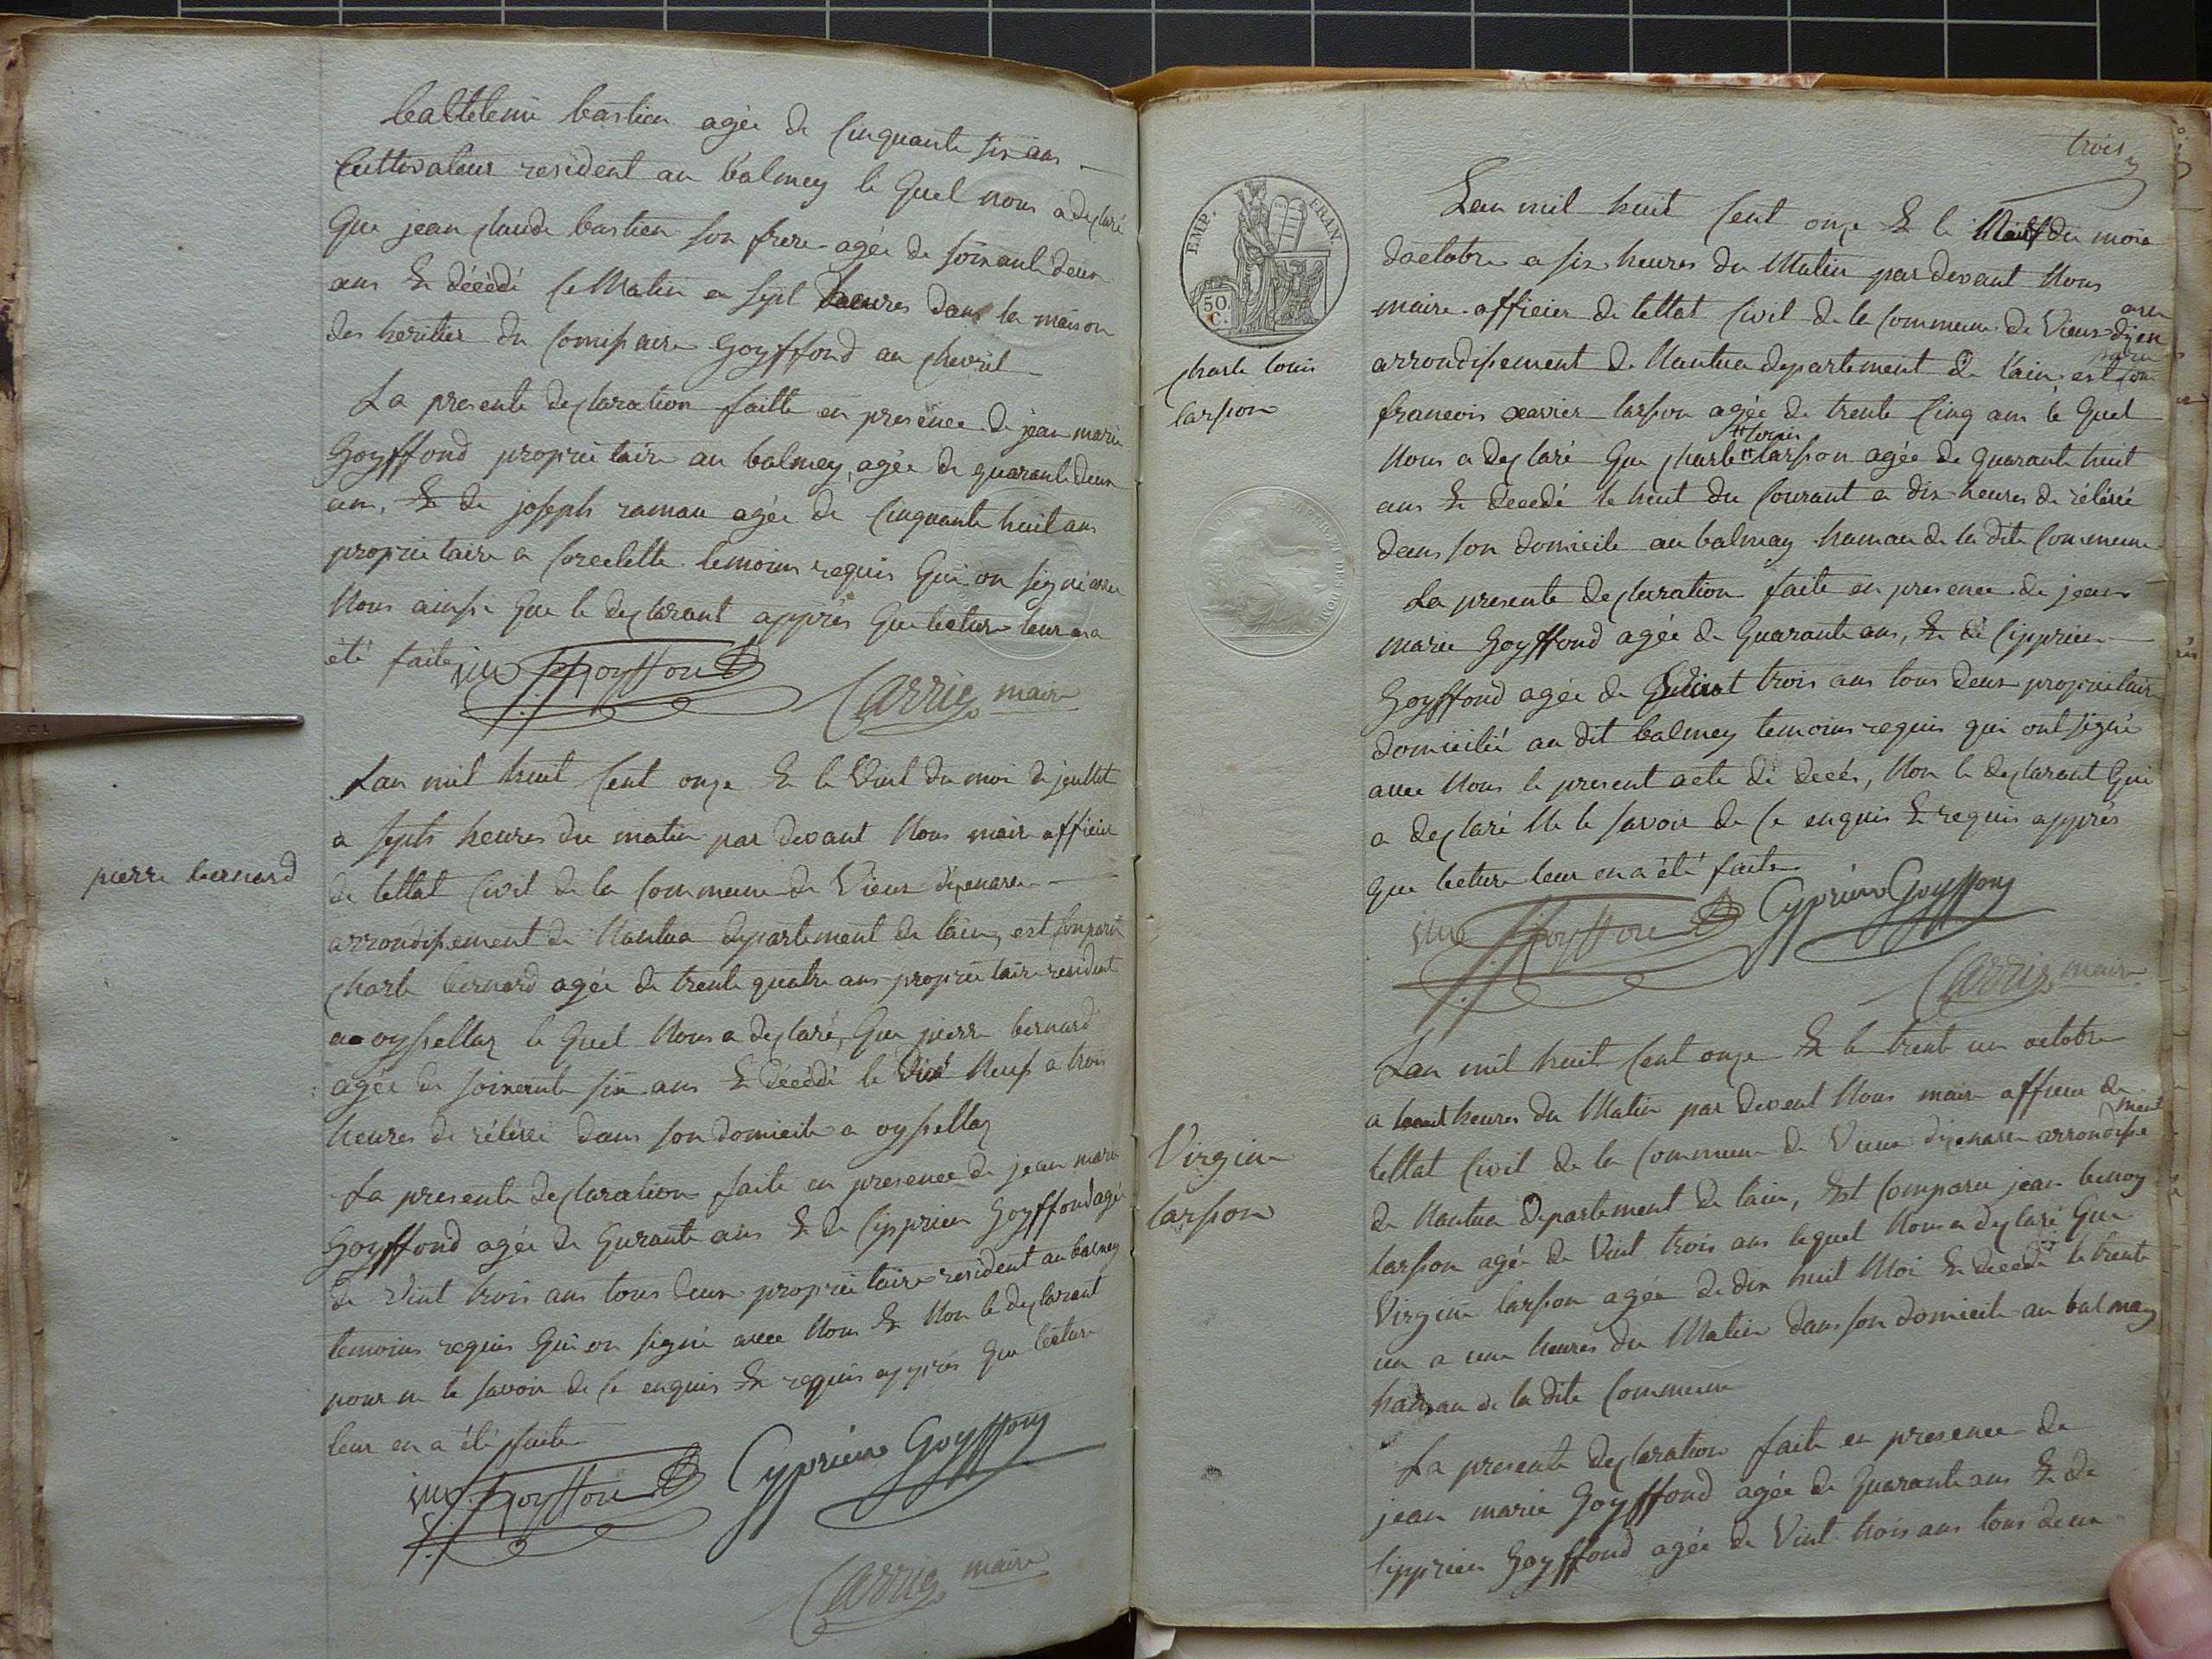 battelemi bastien agée de Cinquante six ans
Cultivateur resident au balmey le quel nous a déclaré
Que jean claude bastien son frere agée de soixante deux
ans Et décédé ce Matin a sept heures dans la maison
des heritier du Comissaire Goyffond au chevril
La presente declaration faitte en presence de jean marie
Goyffond proprietaire au balmey, agée de quarante deux
ans, Et de joseph raman agée de Cinquante huit ans
proprietaire a Corcelette temoins requis Qui on signé avec
Nous ainsi Que le declarant apprés Que lecture leur en a
été faite
jm Goyffond
Carrig maire
pierre bernard
Lan mil huit Cent onze Et le Vint du moi de jeullet
a septs heures du matin par devant Nous maire officier
de lettat Civil de la Commune de Vieux dizenave
arrondissement de Nantua departement de lain, est Comparu
charle bernard agée de trente quatre ans proprietaire resident
a oyssellaz le Quel Nous a declaré, Que pierre bernard
agée de soixente six ans Et décédé le Dix Neuf a trois
heures de rélévée dans son domicile a oyssellaz
La presente declaration faite en presence de jean marie
Goyffond agée de Qurante ans Et de Cipprien Goyffond agée
de Vint trois ans tous deux proprietaire resident au balmey
temoins requis Qui on signé avec Nous Et Non le declarant
pour ne le savoir de Ce enquis Et requis apprés Que lecture
leur en a été faite
jm Goyffond
Cyprien Goyffon
Carrig maire
trois
EMP. FRAN.
50 C.
charle louis
larsson
Lan mil huit Cent onze Et le Neuf du mois
doctobre a six heures du Matin par devant Nous
maire officier de lettat Civil de la Commune de Vieux dizen
ave
arrondissement de Nantua departement de lain, est Com
paru
francois xavier larsson agée de trente Cinq ans le Quel
louis
Nous a declaré Que charle larsson agée de quarante huit
ans Et decedé le huit du Courant a dix heures de rélévée
dans son domicile au balmay hamau de la dite Commune
La presente declaration faite en presence de jean
marie Goyffond agée de Quarante ans, Et de Cipprien
Goyffond agée de Vint trois ans tous deux proprietaire
domicilié au dit balmey temoins requis qui ont signé
avec Nous le present acte de decés, Non le declarant Qui
a declaré Ne le savoir de Ce enquis Et requis apprés
Que lecture leur en a été faite
jm Goyffond
Cyprien Goyffon
Carrig maire
Virgine
larsson
Lan mil huit Cent onze Et le trente un octobre
a heures du Matin par devent Nous maire officier de
lettat Civil de la Commune de Vieux dizenave arrondisse
ment
de Nantua departement de lain, Est Comparu jean benoy
larsson agée de Vint trois ans lequel Nous a declaré Que
Virgine larsson agée de dix huit Moi Et decedé le trente
un a une heures du Matin dans son domicile au balmay
hamau de la dite Commune
La presente declaration faite en presence de
jean marie Goyffond agée de Quarante ans Et de
Cipprien Goyffond agée de Vint trois ans tous deux